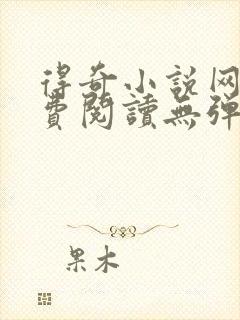 得奇小说网
費閱讀無弹
果木